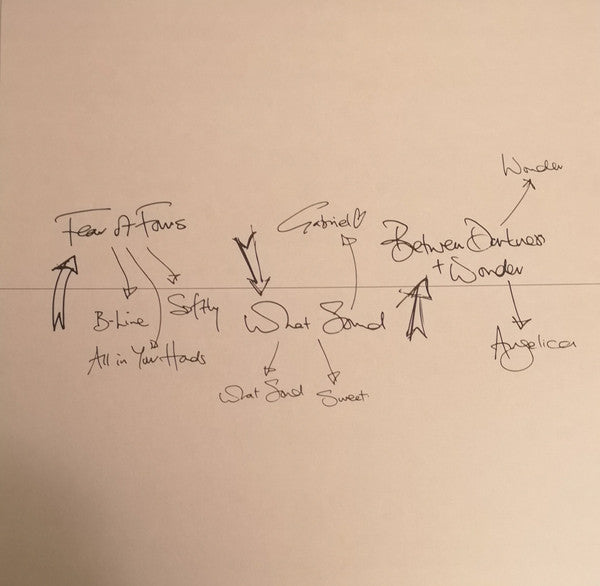 Wonder
Fear of Fours
Gabriel♡
Between Darkness
+ Wonder
B-Line
Softly
What Sound
All in Your Hands
Angelica
What Sound
Sweet